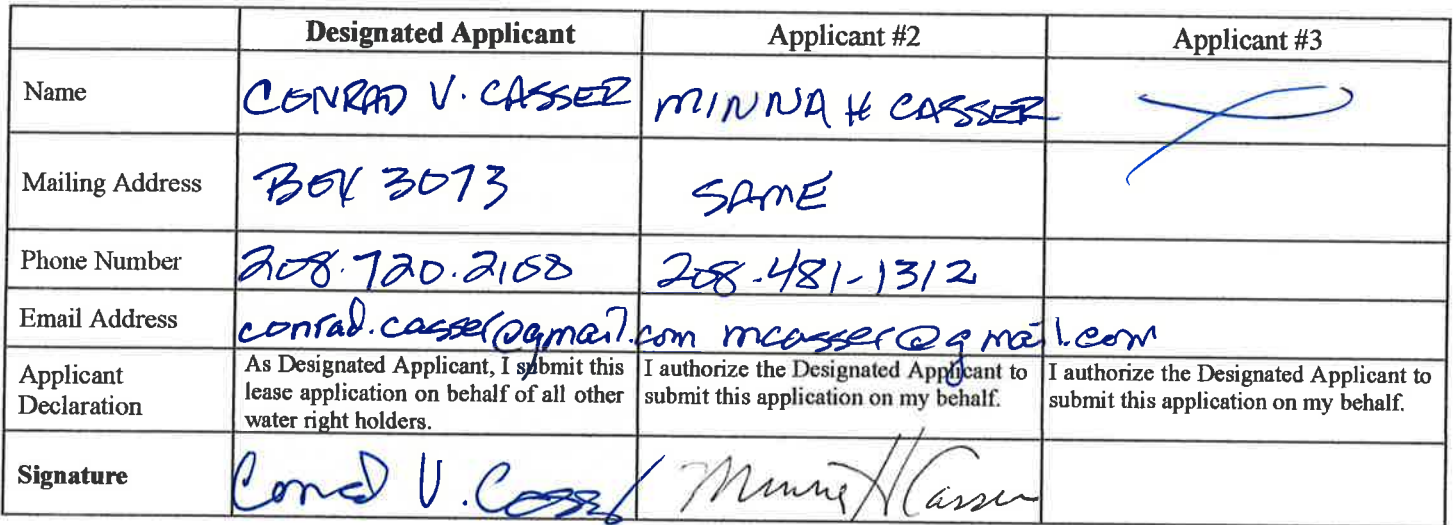 Designated Applicant Applicant #2 Applicant #3
Name CONRAD V. CASSER MINNA H CASSER
Mailing Address BOX 3073 SAME
Phone Number 208.720.2168 208-481-1312
Email Address conrad.casser@gmail.com mcasser@gmail.com
Applicant Declaration
As Designated Applicant, I submit this
lease application on behalf of all other
water right holders.
I authorize the Designated Applicant to
submit this application on my behalf.
I authorize the Designated Applicant to
submit this application on my behalf.
Signature Conrad V. Casser Minna H Casser